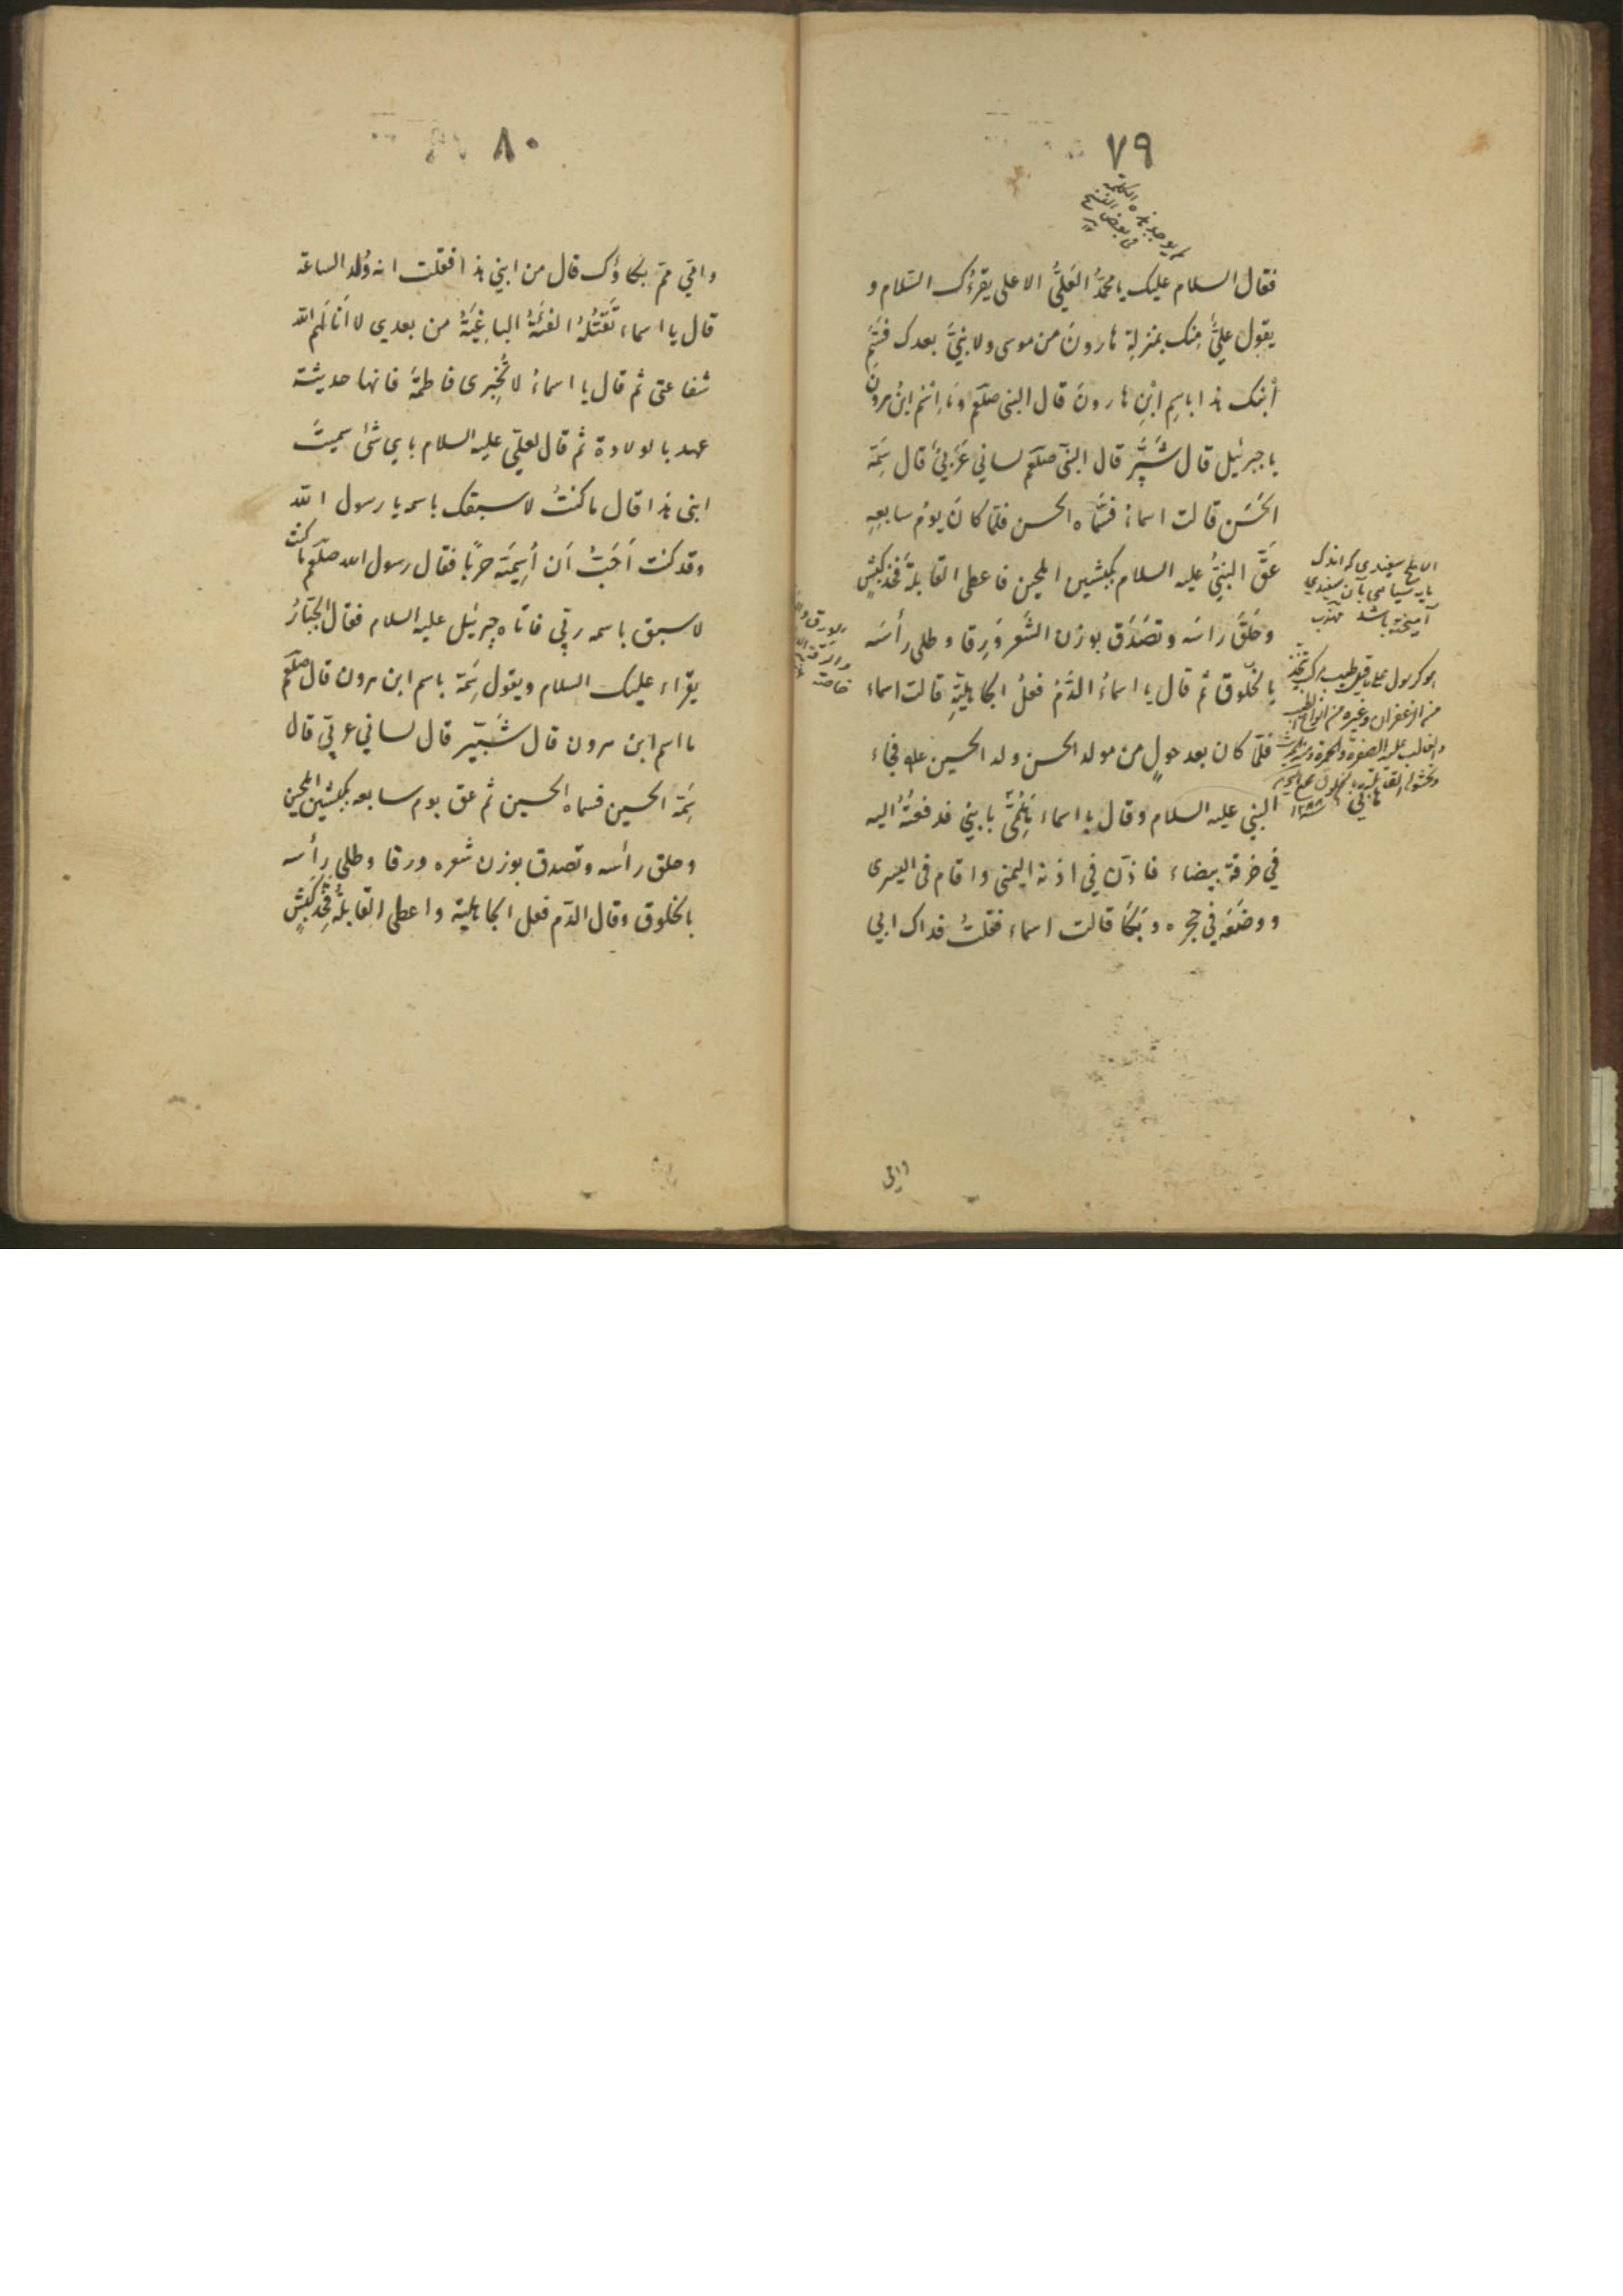 ٧٩
لم يوجد هذه الكلمة
فى بعض النسخ
فقال السلام عليك يا محمدُ العَلِيُّ الاعلى يقرءُك السّلام و
يقول عليٌّ مِنك بمنزلةِ هارونَ من موسى ولا نبيَّ بعدك فسَمِّ
اُبنك هذا باسِم ابْنِ هارونَ قال النبى صلعم وَمَا اِسْم ابنُ هرون
يا جبرئيل قال شَبَّر قال النبى صلعم لساني عَرَبيٌّ قال سَمِّهِ
الحَسَن قالت اسماءُ فسَمَّاه الحسن فلمّا كانَ يومُ سابعِهِ
عَقَّ النبيُّ عليه السلام بكبشين املحين فاعطى القابلةَ فَخِذ كبشٍ
وحَلَقَ راسَه وتصَدَّق بوزن الشَّعر وَرِقا وطلى رأسَه
بالخلوق ثم قال يا اسماءُ الدَّمُ فعلُ الجاهليّةِ قالت اسماء
فلمّا كان بعد حولٍ من مولد الحسن ولد الحسين فجاء
النبي عليه السلام وقال يا اسماء هَلُمّيّ يا بني فدفعتُهُ اليه
في خرقة بيضاء فاذّن في اذنه اليمنى واقام فى اليسرى
ووضعَه في حجره وبَكَا قالت اسماء فقلتُ فداك ابي
الاملح سفيدى كه اندك
مايه سياهى بآن سفيدي
آميخته باشد مهذب
من الزعفران وغيره من انواع الطيب
خاصة
وامّى
٨٠
وامّي مِمّ بكاؤك قال من ابني هذا فقلت انه وُلد الساعة
قال يا اسماء تَقْتُلُهُ الفِئَةُ الباغِيَةُ من بعدي لا أنالَهم الله
شفاعتى ثم قال يا اسماءُ لا تُخْبِرى فاطمةَ فانها حديثة
عهد بالولادة ثم قال لعليّ عليه السلام باي شئ سميتَ
ابنى هذا قال ما كنتُ لاسبقك باسمه يا رسول الله
وقد كنت اُحَبُّ اَن اُسِمّيَه حربًا فقال رسول الله صلعم ما كنت
لاسبق باسمه ربّي فاتاه جبرئيل عليه السلام فقال الجبّارُ
يقراء عليك السلام ويقول سَمِّهِ باسم ابن هرون قال صلعم
ما اسم ابن هرون قال شَبِّير قال لساني عربيّ قال
سَمِّهِ الحسين فسماه الحسين ثم عق يوم سابعه بكبشين املحين
وحلق رأسه وتصدق بوزن شعره ورقا وطلى رأسه
بالخلوق وقال الدّم فعل الجاهلية واعطى القابلةُ فَخِذ كَبشٍ